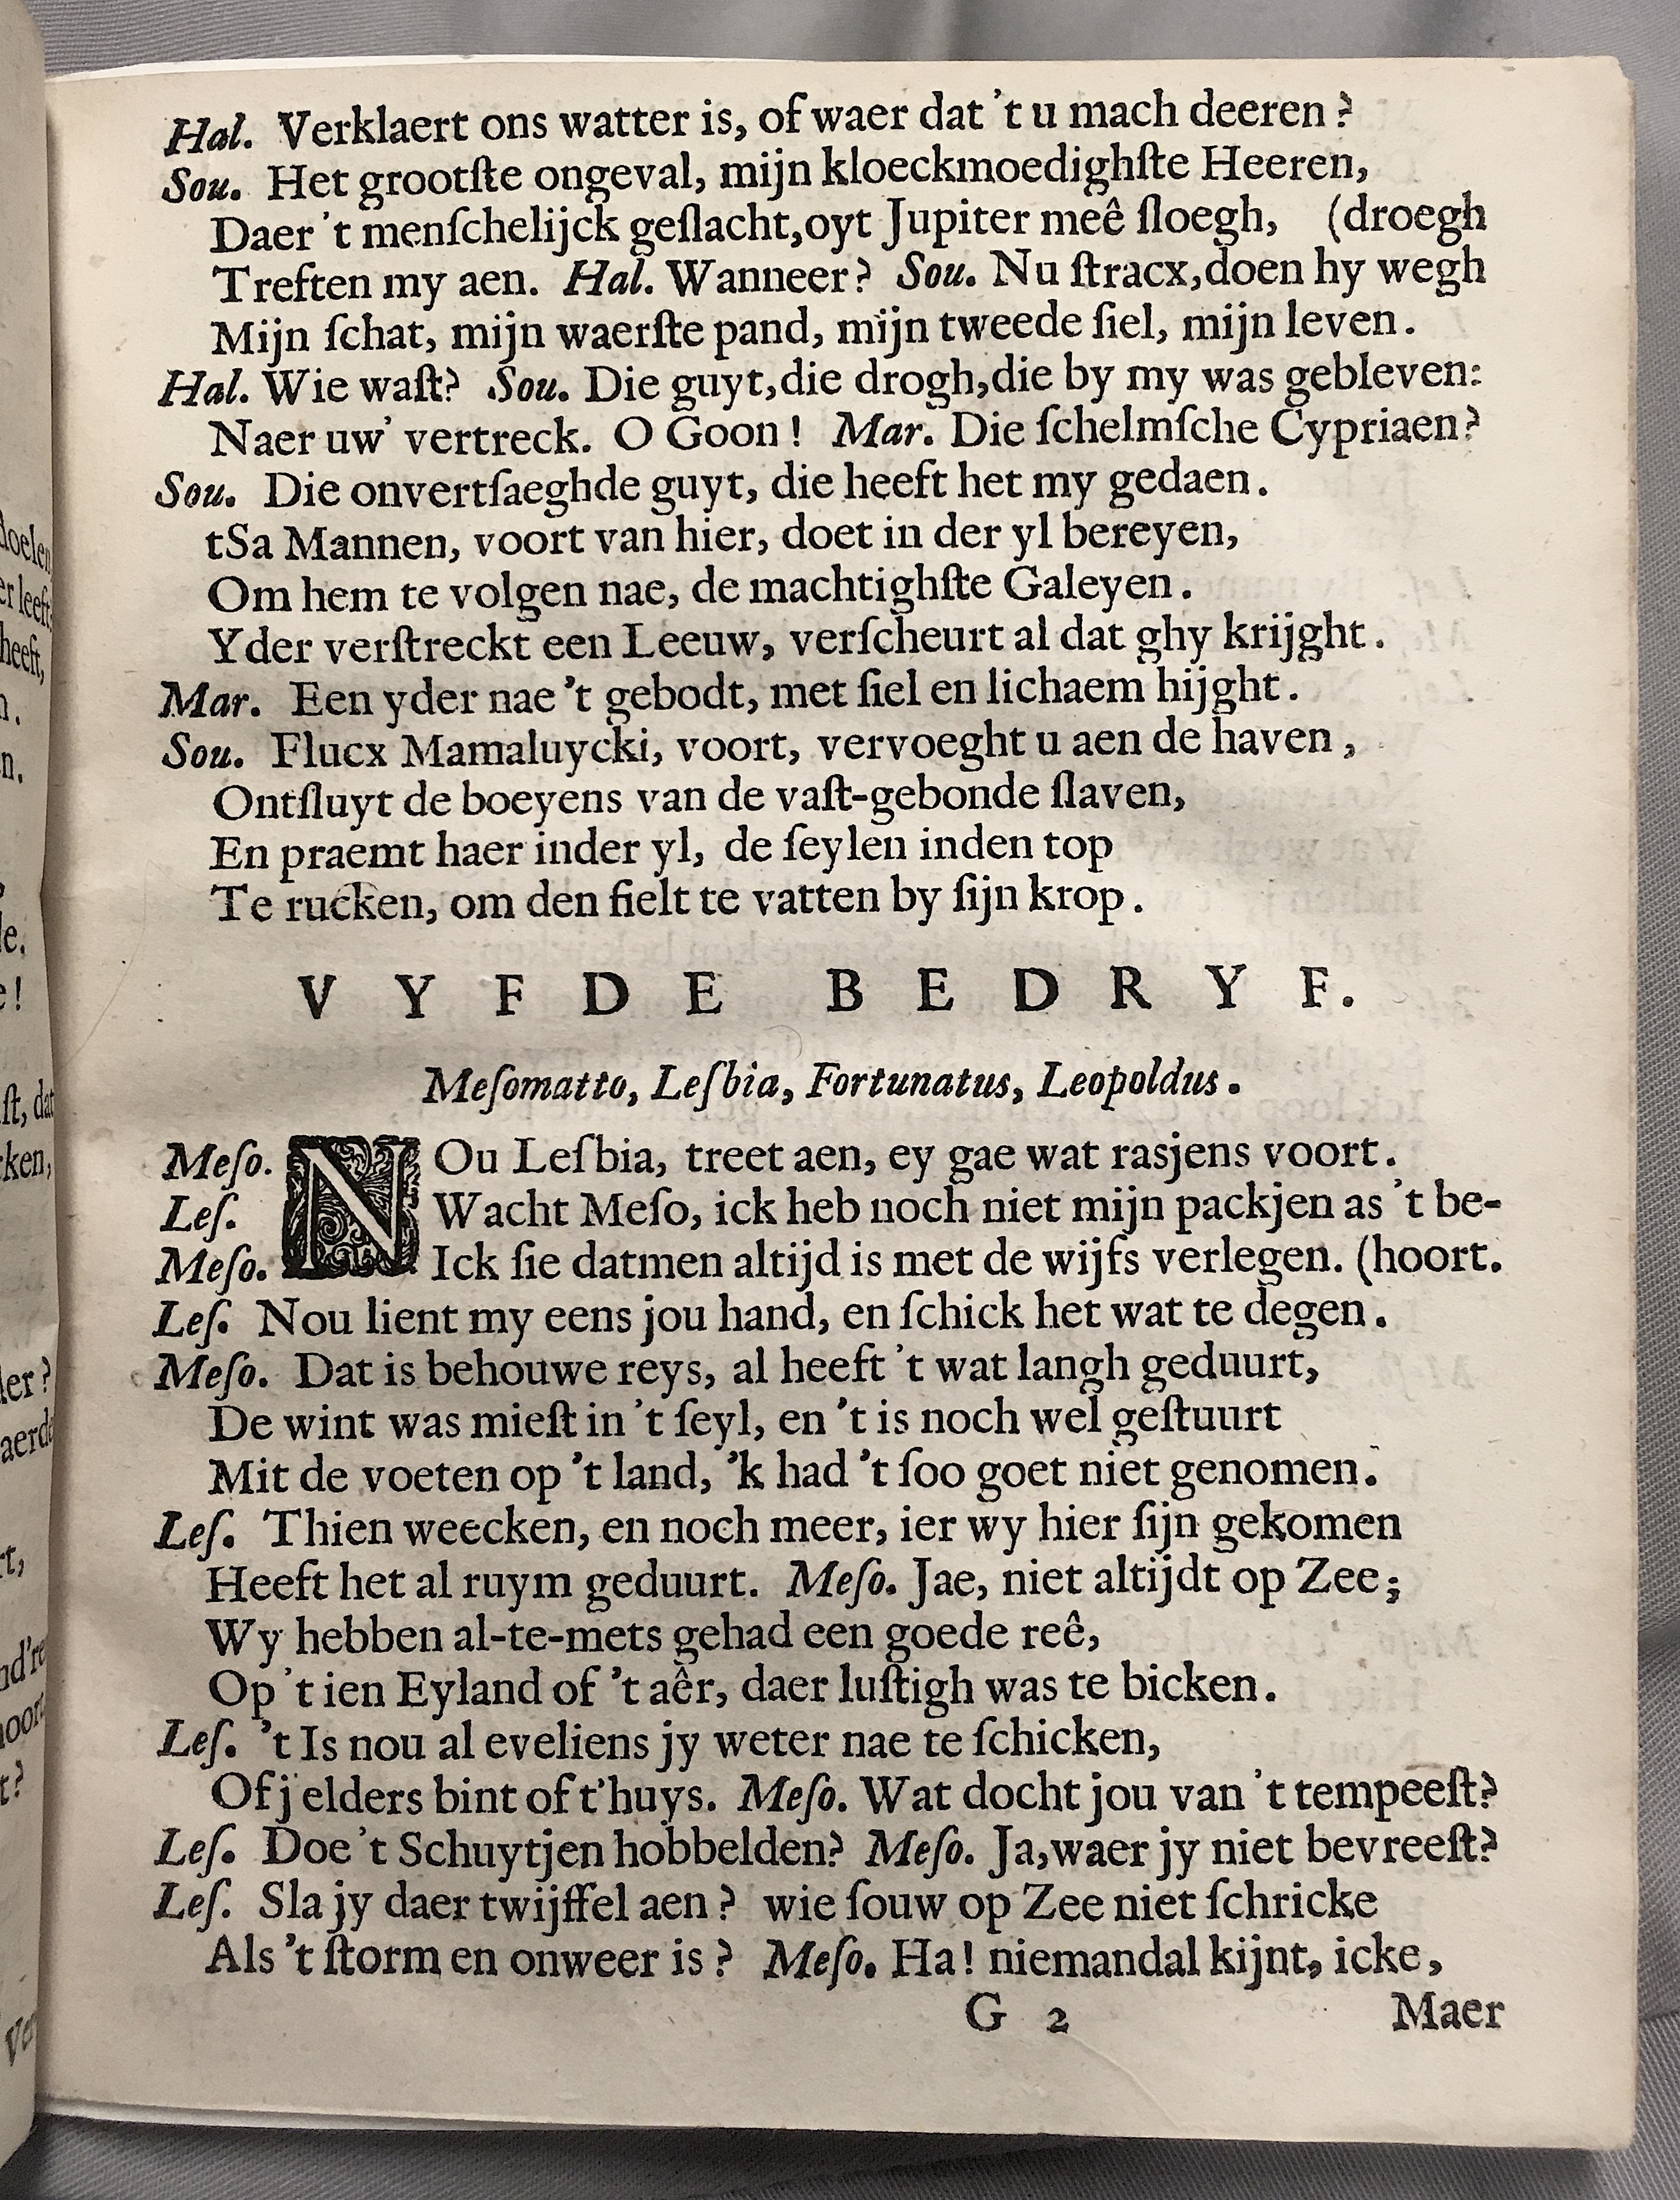 Hal. Verklaert ons watter is, of waer dat 't u mach deeren?
Sou. Het grootſte ongeval, mijn kloeckmoedighſte Heeren,
Daer 't menſchelijck geſlacht, oyt Jupiter meê ſloegh, (droegh
Treften my aen. Hal. Wanneer? Sou. Nu ſtracx, doen hy wegh
Mijn ſchat, mijn waerſte pand, mijn tweede ſiel, mijn leven.
Hal. Wie waſt? Sou. Die guyt, die drogh, die by my was gebleven:
Naer uw' vertreck. O Goon! Mar. Die ſchelmſche Cypriaen?
Sou. Die onvertſaeghde guyt, die heeft het my gedaen.
tSa Mannen, voort van hier, doet in der yl bereyen,
Om hem te volgen nae, de machtighſte Galeyen.
Yder verſtreckt een Leeuw, verſcheurt al dat ghy krijght.
Mar. Een yder nae 't gebodt, met ſiel en lichaem hijght.
Sou. Flucx Mamaluycki, voort, vervoeght u aen de haven,
Ontſluyt de boeyens van de vaſt-gebonde ſlaven,
En praemt haer inder yl, de ſeylen inden top
Te rucken, om den fielt te vatten by ſijn krop.
VYFDE BEDRYF.
Meſomatto, Leſbia, Fortunatus, Leopoldus.
Meſo. NOu Leſbia, treet aen, ey gae wat rasjens voort.
Leſ. Wacht Meſo, ick heb noch niet mijn packjen as 't be-
Meſo. Ick ſie datmen altijd is met de wijfs verlegen. (hoort.
Leſ. Nou lient my eens jou hand, en ſchick het wat te degen.
Meſo. Dat is behouwe reys, al heeft 't wat langh geduurt,
De wint was mieſt in 't ſeyl, en 't is noch wel geſtuurt
Mit de voeten op 't land, 'k had 't ſoo goet niet genomen.
Leſ. Thien weecken, en noch meer, ier wy hier ſijn gekomen
Heeft het al ruym geduurt. Meſo. Jae, niet altijdt op Zee;
Wy hebben al-te-mets gehad een goede reê,
Op 't ien Eyland of 't aêr, daer luſtigh was te bicken.
Leſ. 't Is nou al eveliens jy weter nae te ſchicken,
Of j elders bint of t'huys. Meſo. Wat docht jou van 't tempeeſt?
Leſ. Doe 't Schuytjen hobbelden? Meſo. Ja, waer jy niet bevreeſt?
Leſ. Sla jy daer twijffel aen? wie ſouw op Zee niet ſchricke
Als 't ſtorm en onweer is? Meſo. Ha! niemandal kijnt, icke,
G 2 Maer